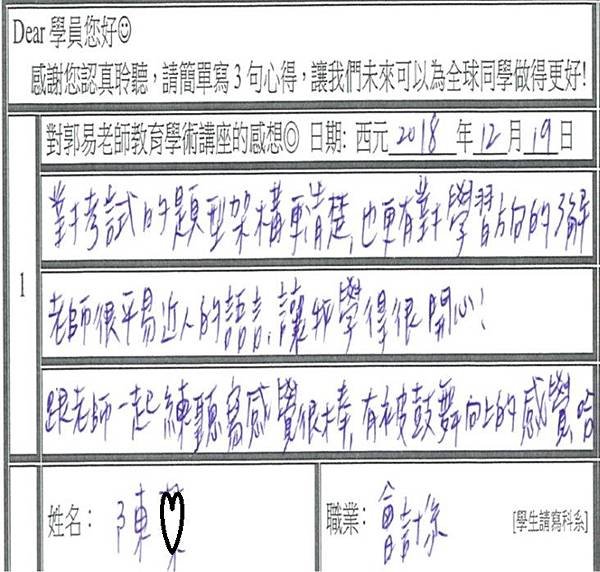 Dear 學員您好☺
感謝您認真聆聽，請簡單寫 3 句心得，讓我們未來可以為全球同學做得更好!
對郭易老師教育學術講座的感想◎ 日期: 西元 2018 年 12 月 19 日
1
對於考試的題型架構更清楚,也更有對於學習方向的了解
老師很平易近人的語言,讓我學得很開心!
跟老師一起練聽寫感覺很棒,有被鼓舞向上的感覺哈
姓名： 陳
職業： 會計系 [學生請寫科系]